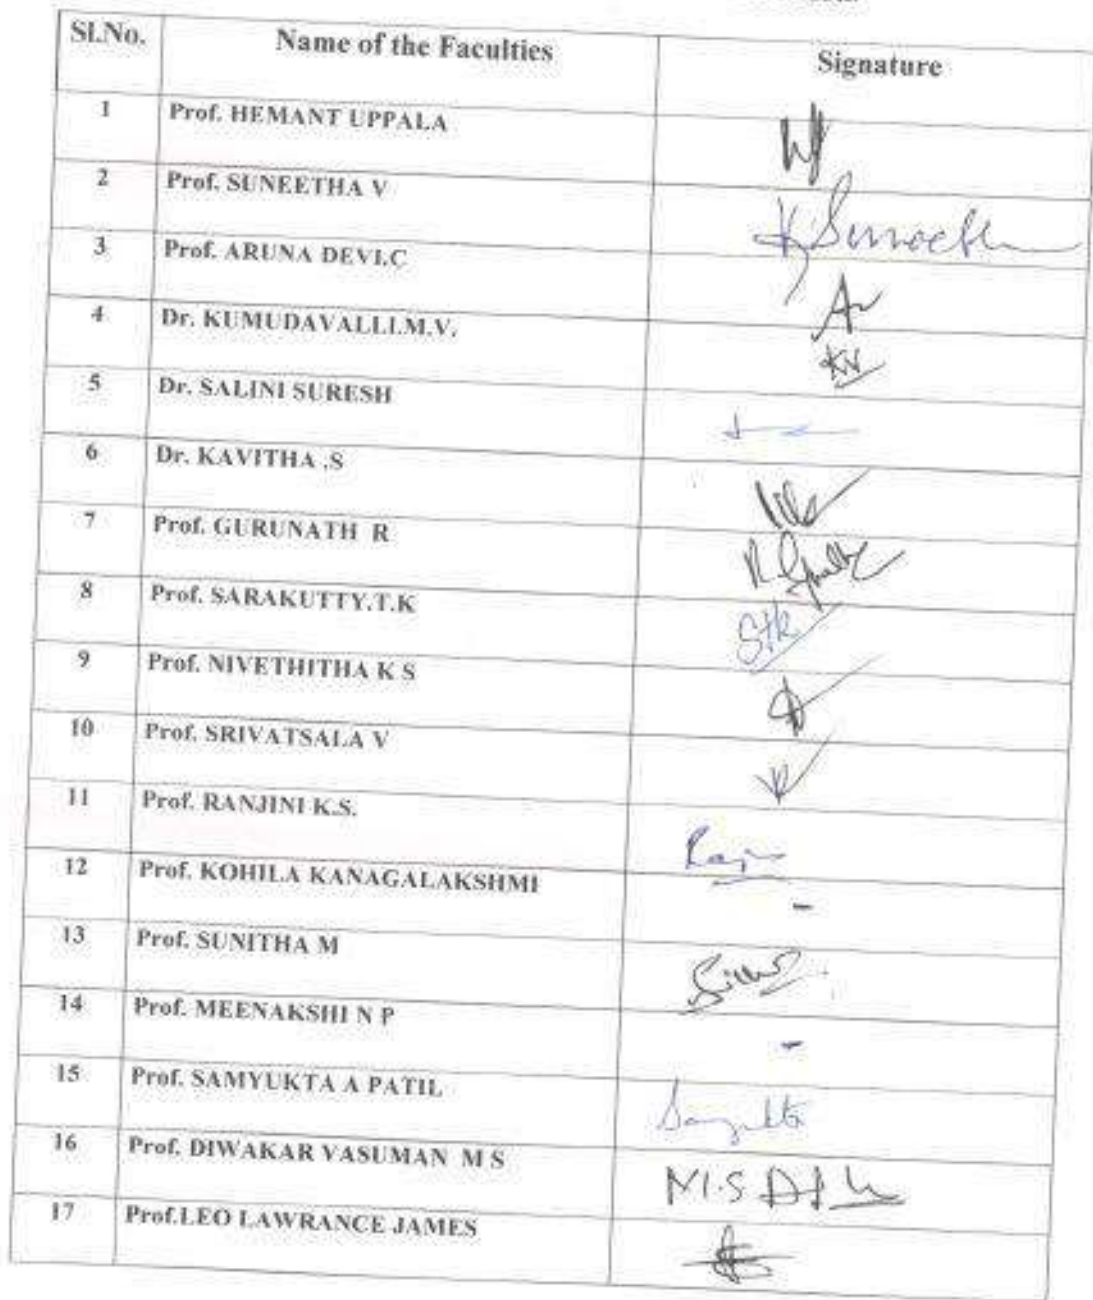 Sl.No. Name of the Faculties Signature
1 Prof. HEMANT UPPALA
2 Prof. SUNEETHA V
3 Prof. ARUNA DEVI.C
4 Dr. KUMUDAVALLI.M.V.
5 Dr. SALINI SURESH
6 Dr. KAVITHA ,S
7 Prof. GURUNATH R
8 Prof. SARAKUTTY.T.K Stk
9 Prof. NIVETHITHA K S
10 Prof. SRIVATSALA V
11 Prof. RANJINI K.S.
12 Prof. KOHILA KANAGALAKSHMI -
13 Prof. SUNITHA M
14 Prof. MEENAKSHI N P -
15 Prof. SAMYUKTA A PATIL
16 Prof. DIWAKAR VASUMAN M S M.S
17 Prof.LEO LAWRANCE JAMES